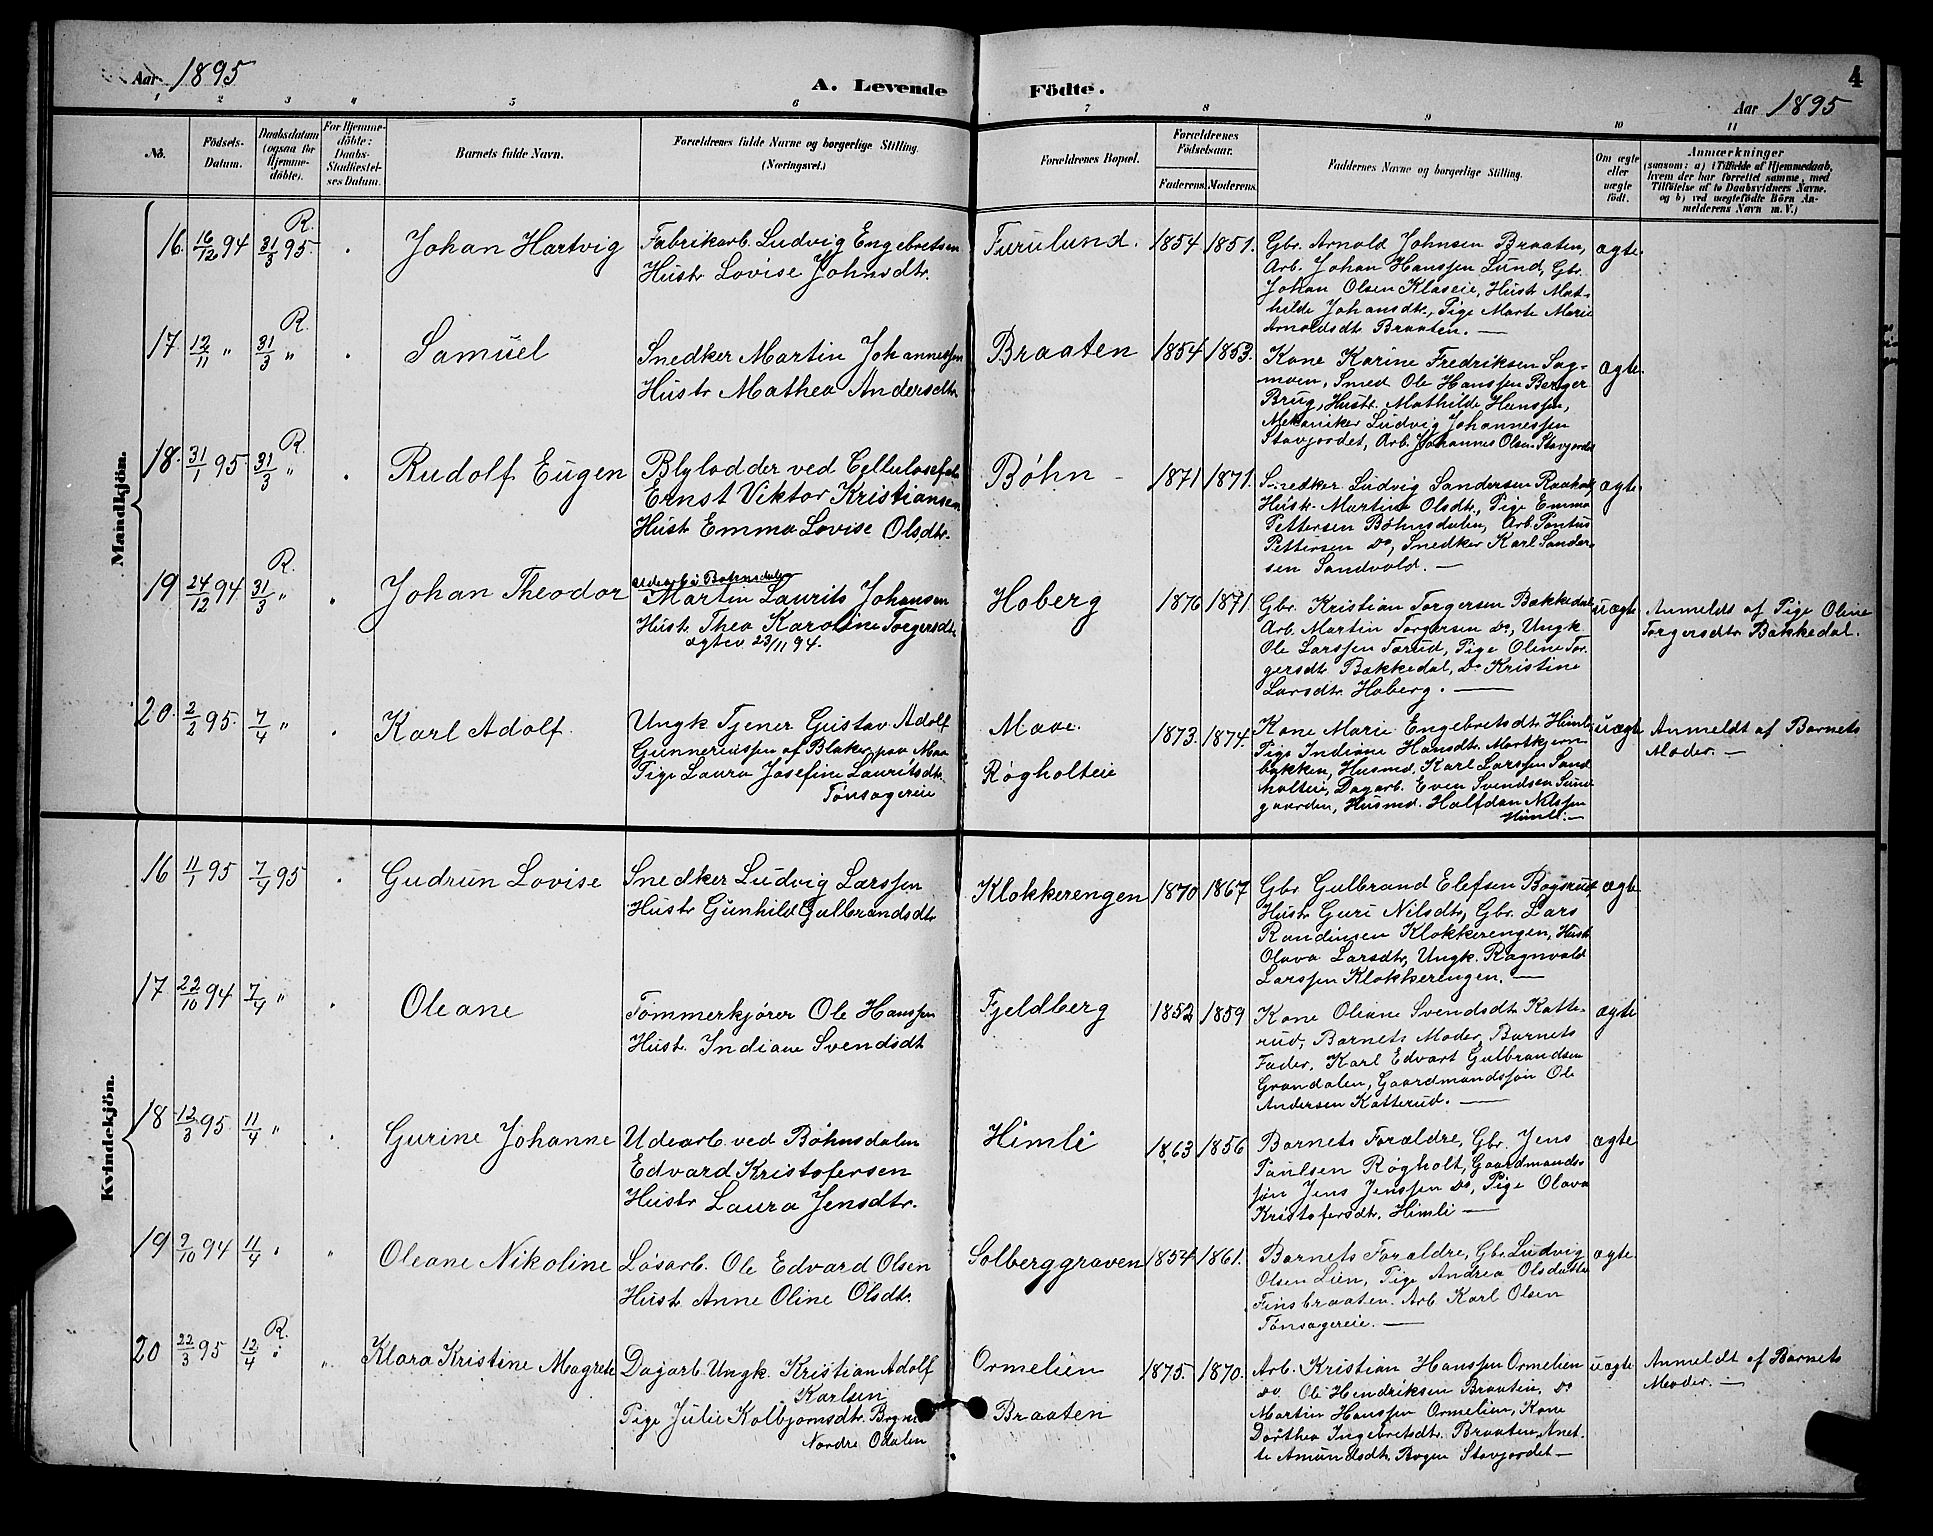 Aar 1895
A. Levende Födte.
4
Aar 1895
1 2 3 4 5 6 7 8 9 10 11
No.
Födsels-Datum.
Daabsdatum (ogsaa for Hjemme-döbte).
For Hjemme-döbte: Daabs-Stadfæstel-ses Datum.
Barnets fulde Navn.
Forældrenes fulde Navne og borgerlige Stilling. (Næringsvei.)
Forældrenes Bopæl.
Forældrenes Födselsaar.
Faderens. Moderens.
Faddernes Navne og borgerlige Stilling.
Om ægte eller uægte födt.
Anmærkninger
(saasom: a) i Tilfælde af Hjemmedaab,
hvem der har forrettet samme, med
Tilföielse af to Daabsvidners Navne.
og b) ved uægtefödte Börn An-
melderens Navn m. V.)
Mandkjön.
16. 16/12 94 31/3 95. R. Johan Hartvig
Fabrikarb. Ludvig Engebretsen
Hustr. Lovise Johnsdtr.
Furulund. 1854 1851.
Gbr. Arnold Johnsen Braaten,
Arb. Johan Hanssen Lund, Gbr.
Johan Olsen Klaseie, Hustr. Mat-
hilde Johansdtr., Pige Marte Marie
Arnoldsdtr. Braaten. —
ægte.
17. 12/11 " 31/3 " R. Samuel
Snedker Martin Johannessen
Hustr. Mathea Andersdtr.
Braaten 1854 1853.
Kone Karine Fredriksen Sag-
moen, Smed Ole Hanssen Berger
Brug, Hustr. Mathilde Hanssen,
Mekaniker Ludvig Johannessen
Stavjordet, Arb. Johannes Olsen Stavjordet
ægte.
18. 31/1 95. 31/3 " R. Rudolf Eugen
Blylodder ved Cellulosefab.
Ernst Viktor Kristiansen
Hustr. Emma Lovise Olsdtr.
Bøhn 1871 1871.
Snedker Ludvig Sandersen Raaholt,
Hustr. Martine Olsdtr., Pige Emma
Pettersen Bøhnsdalen, Arb. Pontus
Pettersen Do, Snedker Karl Sander-
sen Sandvold. —
ægte.
19 24/12 94 31/3 " R. Johan Theodor
Udearb. i Bøhnsdalen
Martin Laurits Johansen
Hustr. Thea Karoline Torgersdtr.
ægtev. 23/11 94.
Hoberg 1876 1871.
Gbr. Kristian Torgersen Bækkedal,
Arb. Martin Torgersen Do, Ungk.
Ole Larssen Tærud, Pige Oline Tor-
gersdtr. Bækkedal, Do Kristine
Larsdtr. Hoberg. —
uægte
Anmeldt af Pige Oline
Torgersdtr. Bækkedal.
20. 2/2 95. 7/4 " Karl Adolf.
Ungk. Tjener Gustav Adolf
Gunneriussen af Blaker, paa Moe
Pige Laura Josefine Lauritsdtr.
Tønsagereie
Moe.
Røgholteie
1873. 1874.
Kone Marie Engebretsdtr. Himli,
Pige Indiane Hansdtr. Mortkjern-
bakken, Husmd. Karl Larssen Sand-
holteie, Dagarb. Even Svendsen Sund-
gaarden, Husmd. Halfdan Nilssen
Himli. —
uægte
Anmeldt af Barnets
Moder. —
Kvindekjön.
16 11/1 95 7/4 95 Gudrun Lovise
Snedker Ludvig Larssen
Hustr. Gunhild Gulbrandsdtr.
Klokkerengen 1870 1867
Gbr. Gulbrand Elefsen Bogsrud,
Hustr. Guri Nilsdtr., Gbr. Lars
Randinsen Klokkerengen, Hustr.
Olava Larsdtr., Ungk. Ragnvald
Larssen Klokkerengen. —
ægte
17 22/10 94 7/4 " Oleane
Tømmerkjører Ole Hanssen
Hustr. Indiane Svendsdtr.
Fjeldberg 1852 1859
Kone Oliane Svendsdtr. Katte-
rud, Barnets Moder, Barnets
Fader, Karl Edvart Gulbrandsen
Grandalen, Gaardmandssøn Ole
Andersen Katterud. —
ægte
18 12/3 95. 11/4 " Gurine Johanne
Udearb. ved Bøhnsdalen
Edvard Kristofersen
Hustr. Laura Jensdtr.
Himli 1863 1856
Barnets Forældre, Gbr. Jens
Paulsen Røgholt, Gaardmands-
søn Jens Jenssen Do, Pige Olava
Kristofersdtr. Himli —
ægte
19 9/10 94 11/4 " Oleane Nikoline
Løsarb. Ole Edvard Olsen
Hustr. Anne Oline Olsdtr.
Solberggraven 1854 1861.
Barnets Forældre, Gbr. Ludvig
Olsen Lien, Pige Andrea Olsdatter
Finsbraaten. Arb. Karl Olsen
Tønsagereie. —
ægte
20 22/3 95 12/4 " R. Klara Kristine Magrete
Dagarb. Ungk. Kristian Adolf
Karlsen
Pige Julie Kolbjørnsdtr.
Nordre Odalen
Ormelien
Braaten
1875. 1870.
Arb. Kristian Hanssen Ormelien
Do. Ole Hendriksen Braaten, Do
Martin Hanssen Ormelien, Kone
Dorthea Ingebretsdtr. Braaten, Anet-
te Amundsdtr. Bogen Stavjordet —
uægte
Anmeldt af Barnets
Moder. —